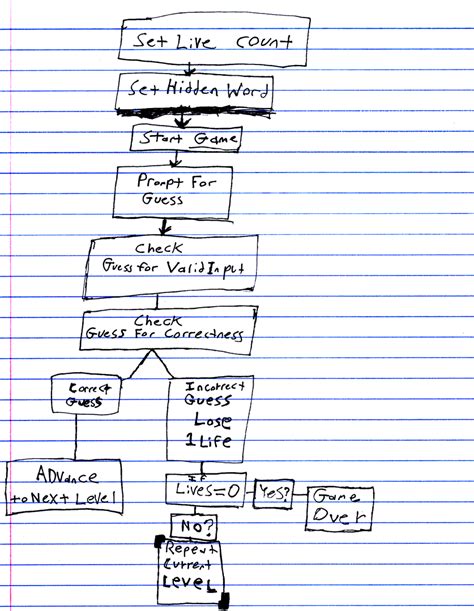 Set Live count
Set Hidden Word
Start Game
Prompt For
Guess
Check
Guess for Valid Input
Check
Guess For Correctness
Correct
Guess
Incorrect
Guess
Lose
1 Life
ADVance
to Next Level
If
Lives=0
Yes?
Game
Over
No?
Repeat
Current
LEVEL